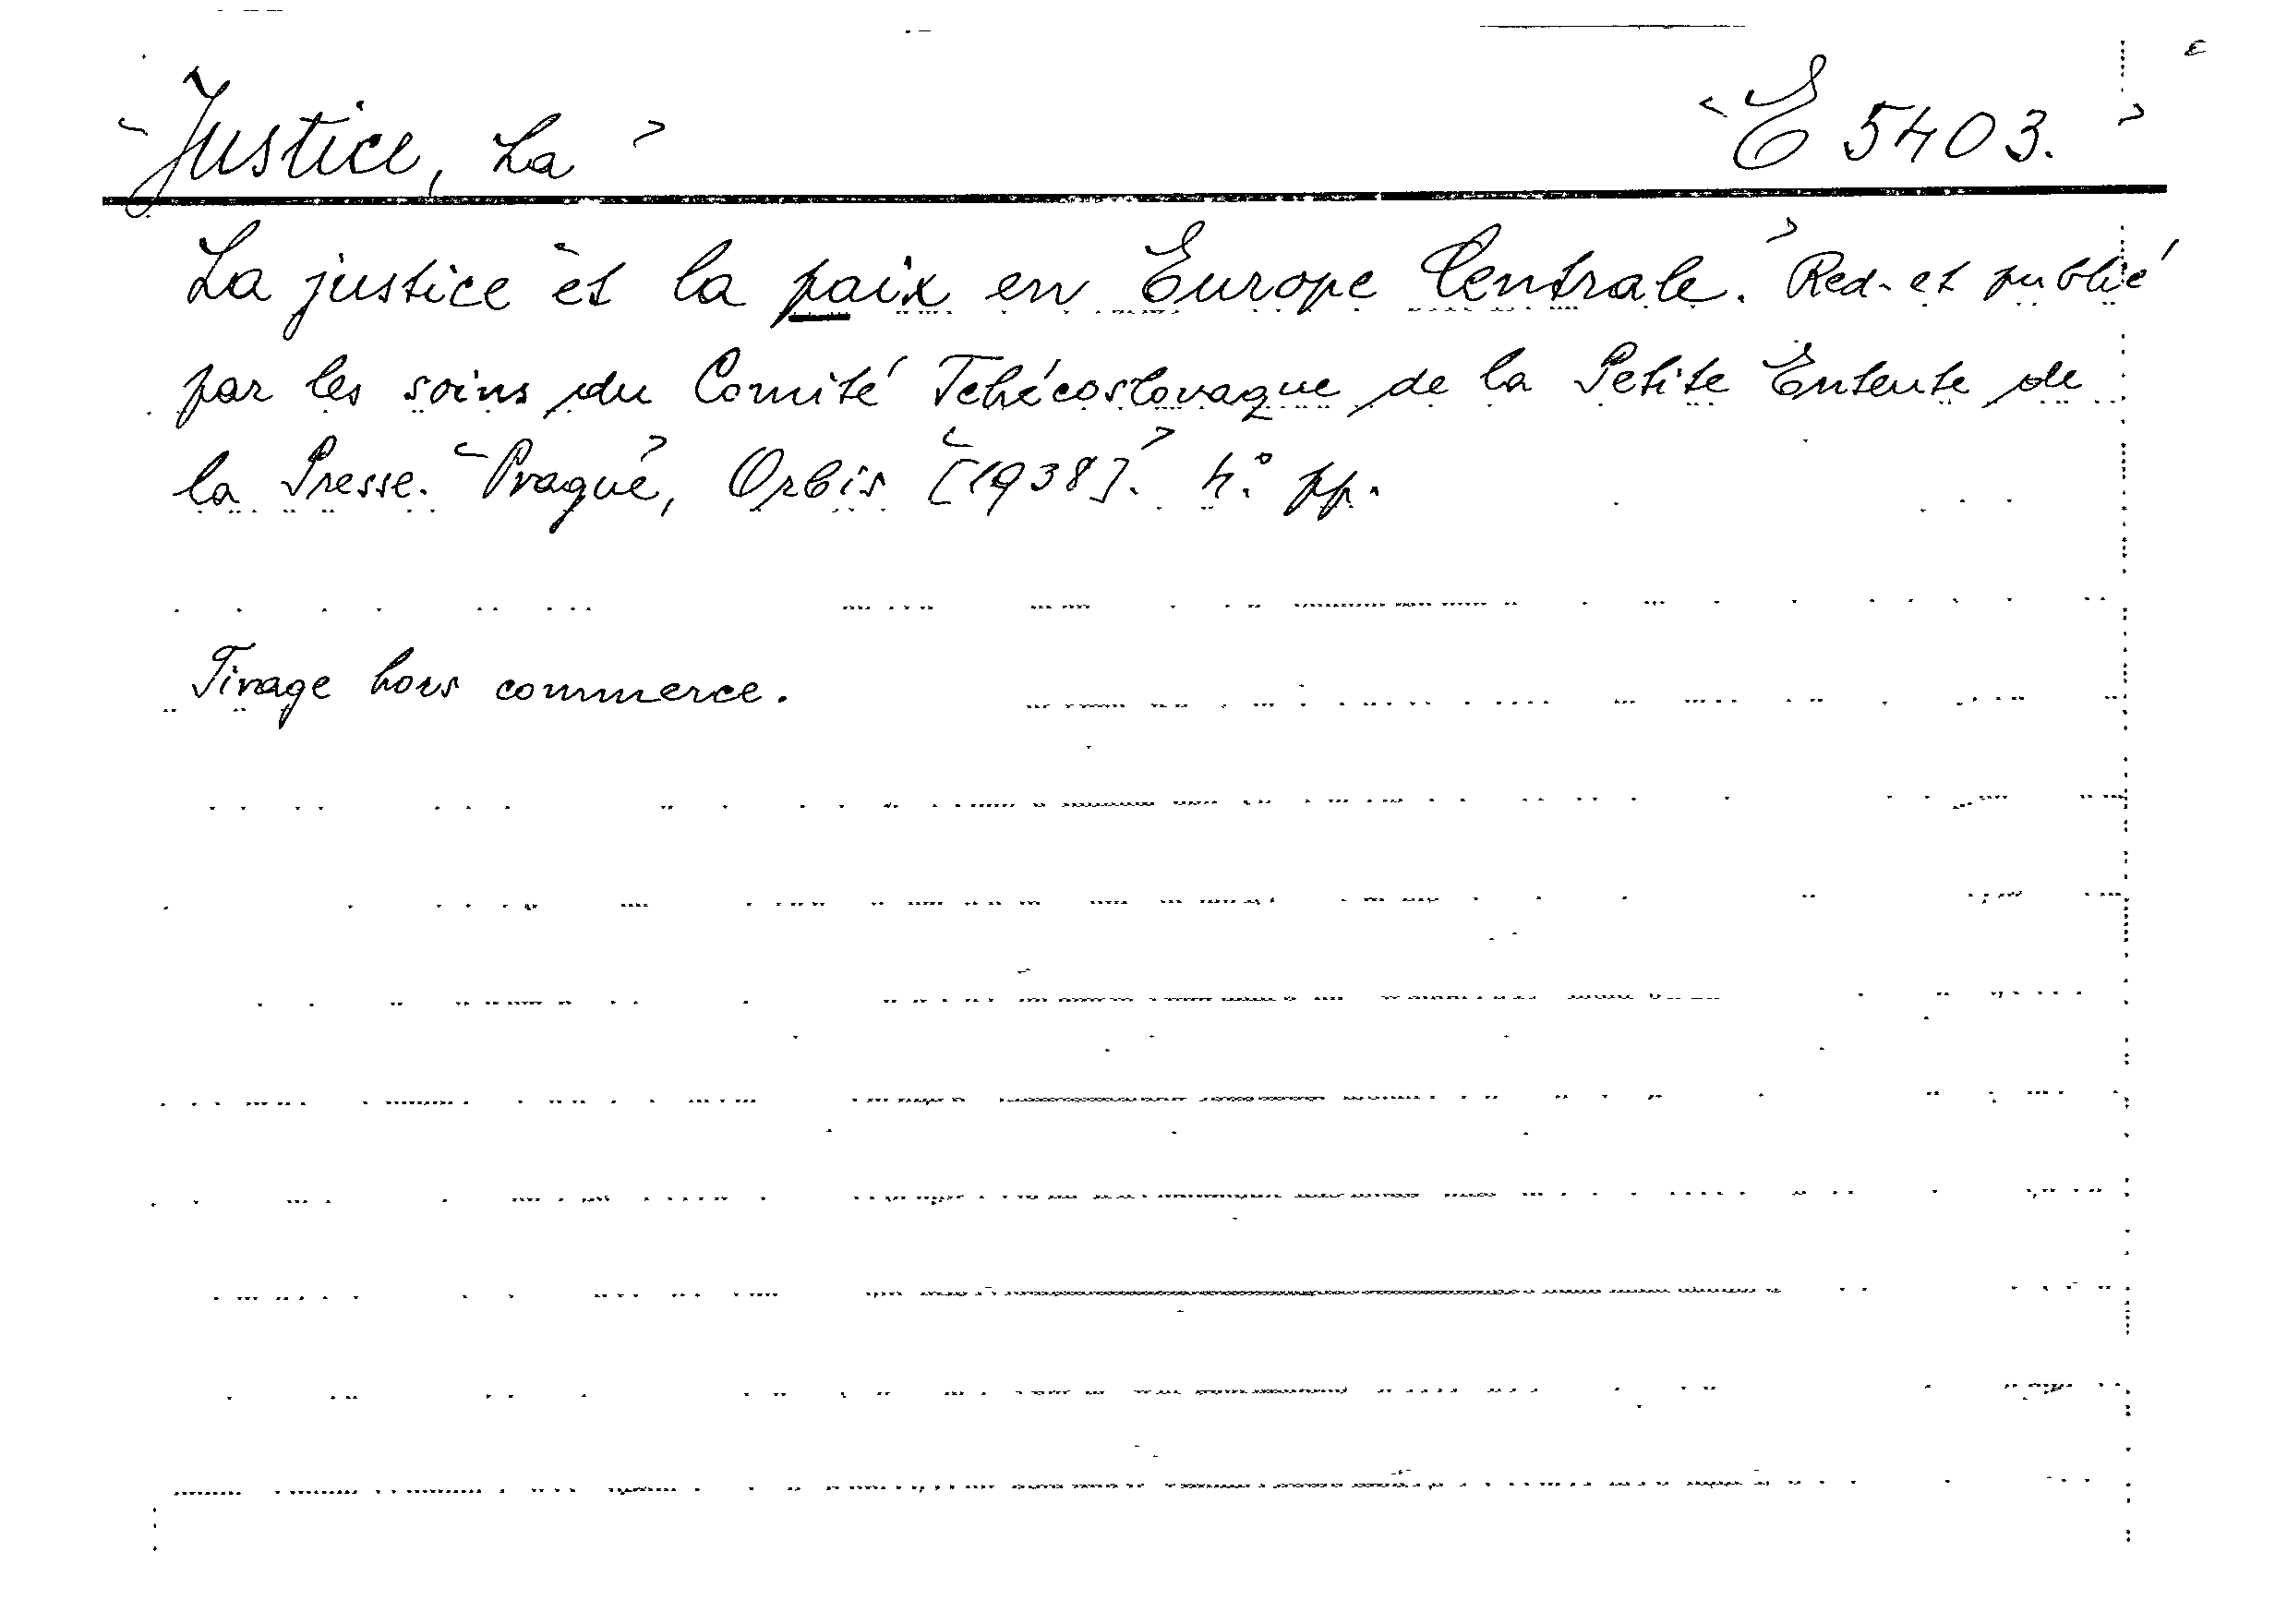 Justice, La E 5403.
La justice et la paix en Europe Centrale. Red. et publié
par les soins du Comité Tchécoslovaque de la Petite Entente de
la Presse. Prague, Orbis [1938]. 4° pp.
Tirage hors commerce.